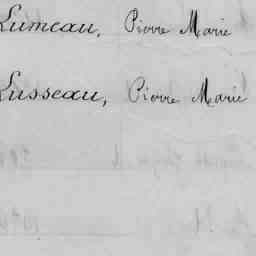 Lumeau, Pierre Marie
Lusseau, Pierre Marie